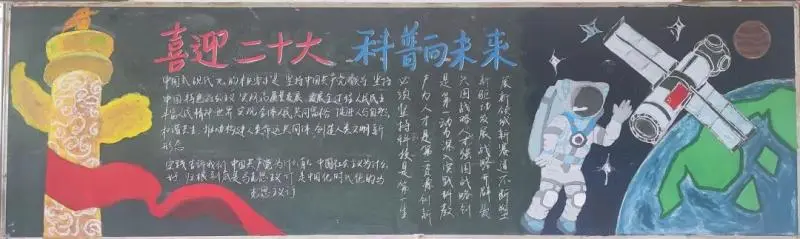 喜迎二十大 科普向未来
中国式现代化的本质要求是 坚持中国共产党领导 坚持
中国特色社会主义 实现高质量发展 发展全过程人民民主
丰富人民精神世界 实现全体人民共同富裕 促进人与自然
和谐共生 推动构建人类命运共同体 创造人类文明新
形态
实践告诉我们 中国共产党为什么 中国社会主义为什么
好 归根到底是马克思主义行 是中国化时代化的马
克思主义行
必须坚持科技是第一生
产力人才是第一资源创新
是第一动力深入实施科教
兴国战略人才强国战略创
新驱动发展战略开辟发
展新领域新赛道不断塑